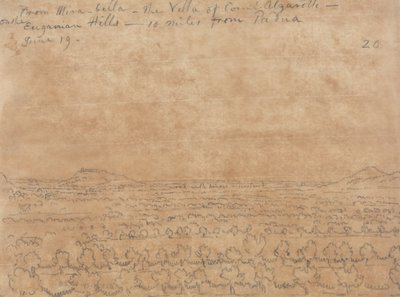 From Mira-bella - The Villa of Count Algarotti -
on the Euganian Hills - 10 miles from Padua
June 19.
20